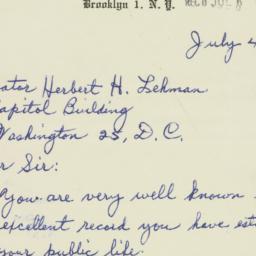 Brooklyn 1, N. Y.
REC'D JUL 6
July 4
ator Herbert H. Lehman
apitol Building
Washington 25, D.C.
r Sir:
You are very well known
excellent record you have est
your public life.